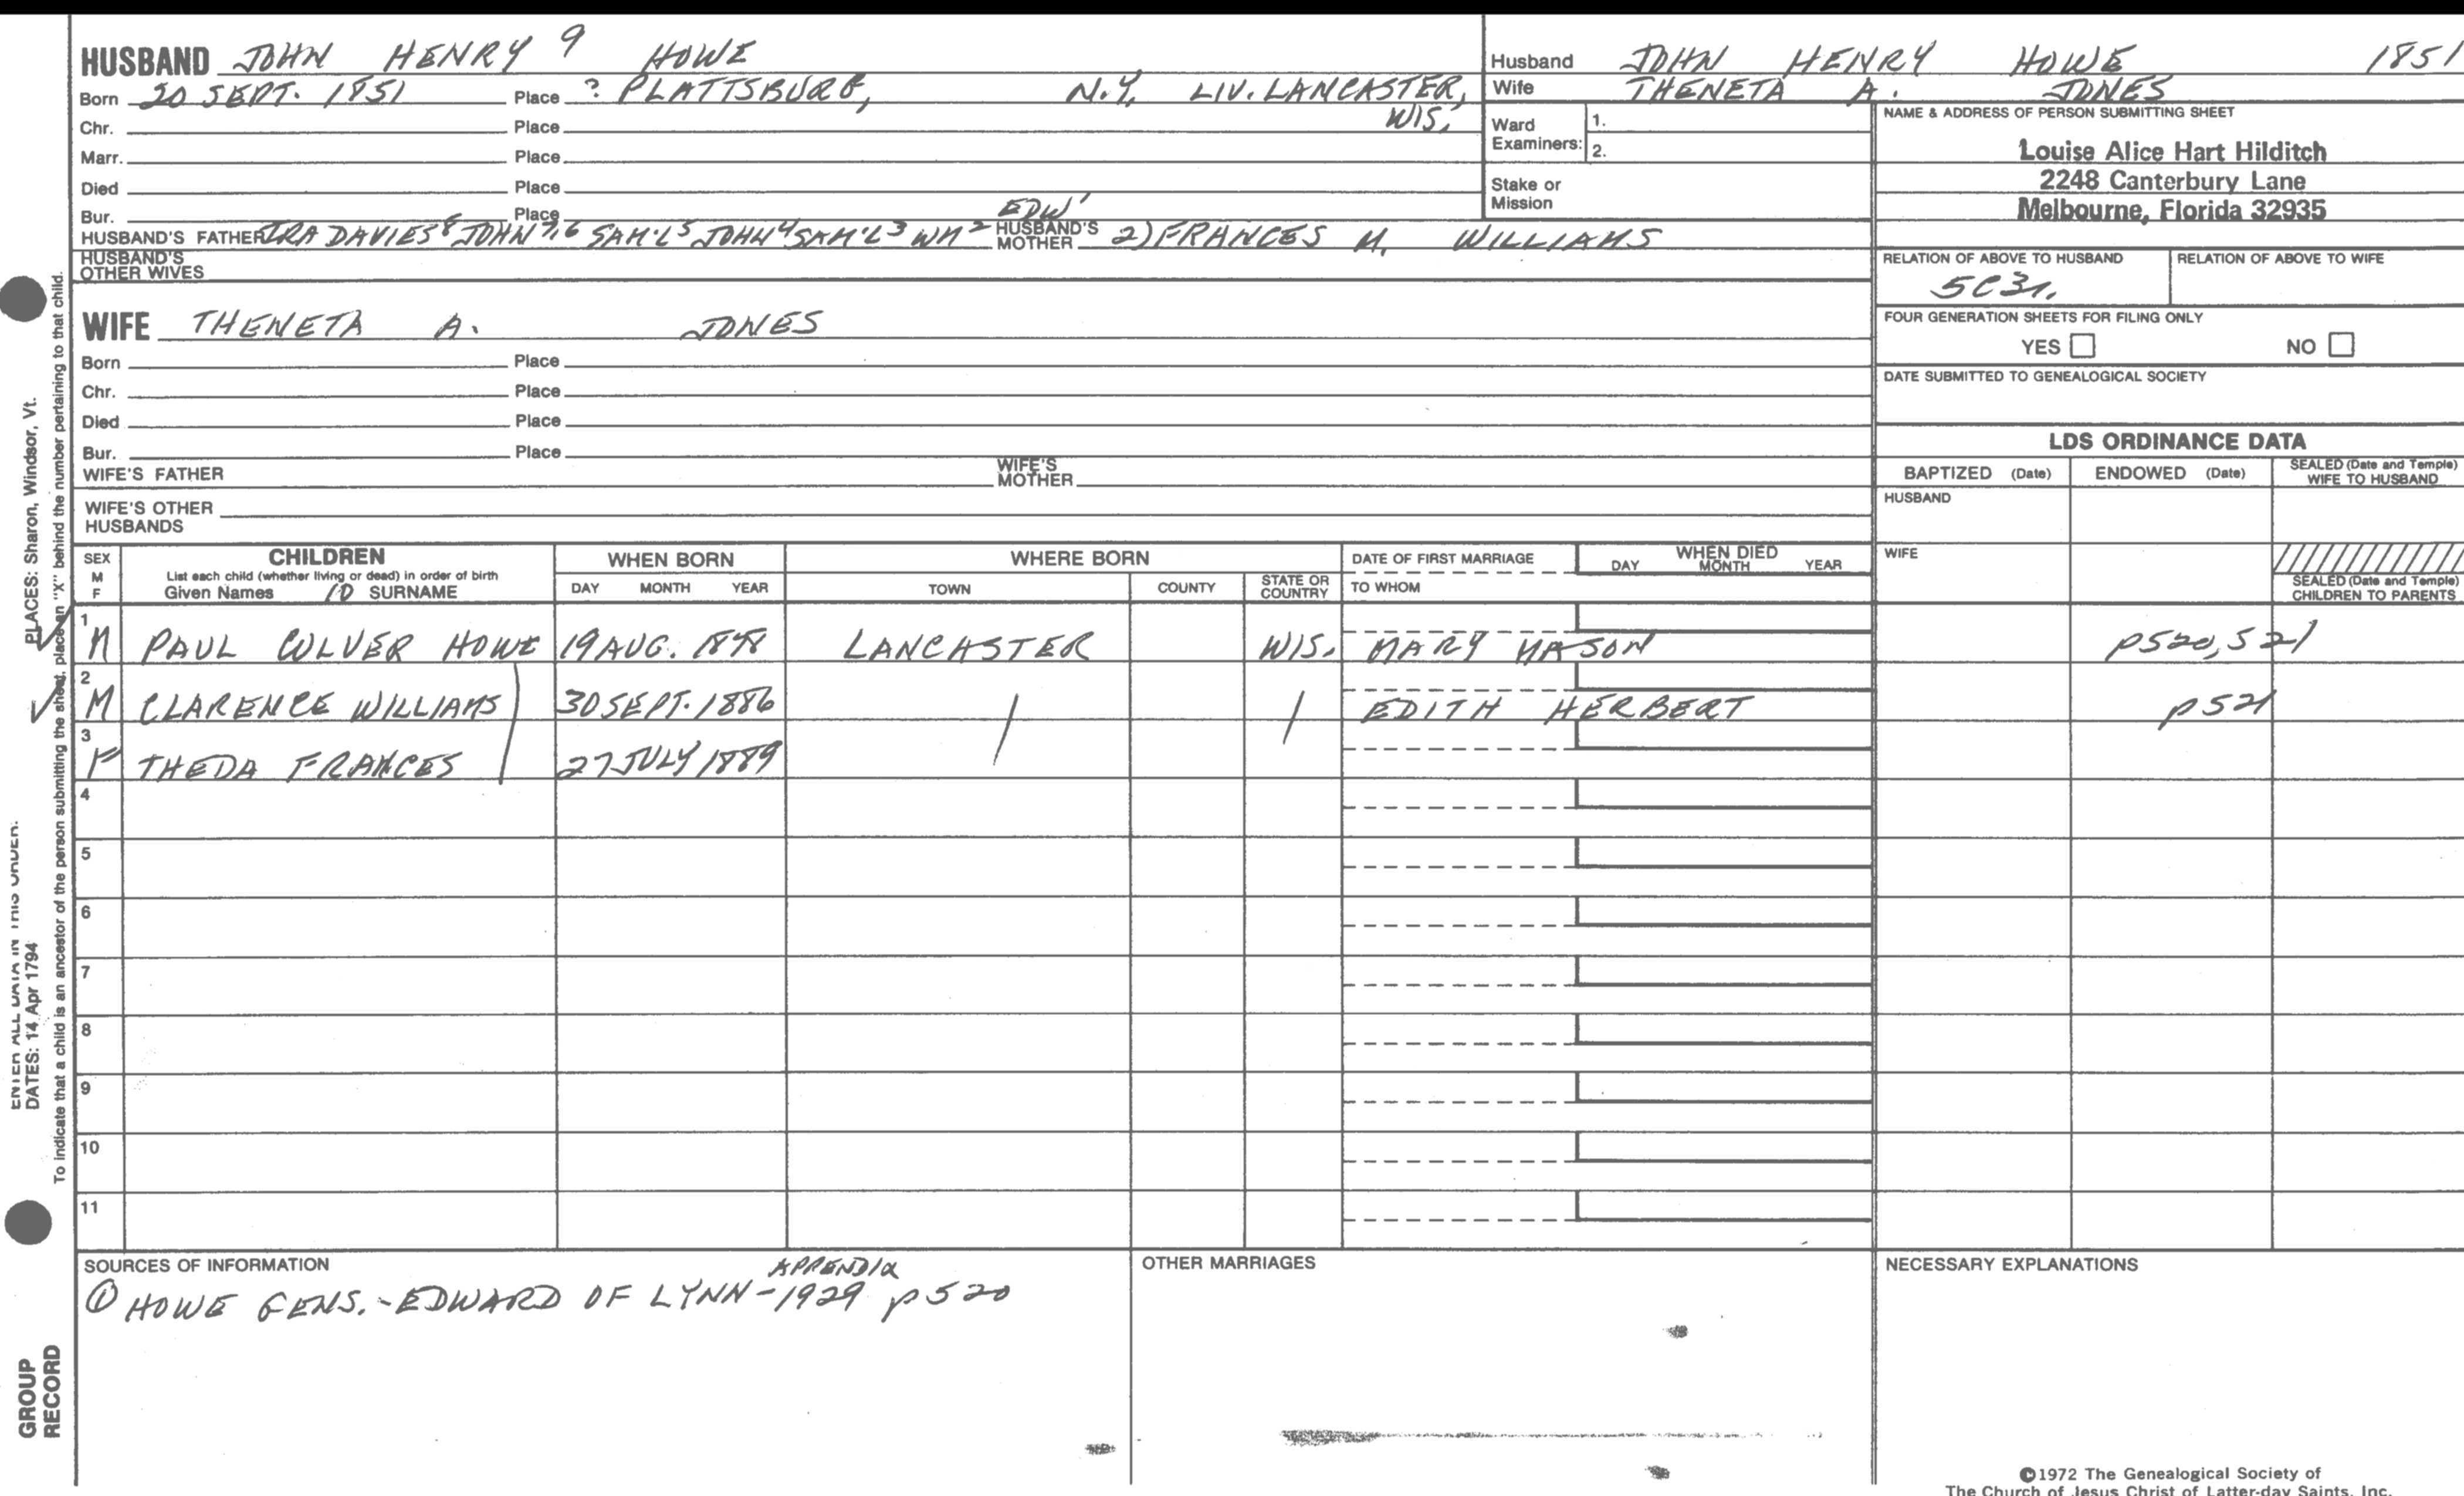 HUSBAND JOHN HENRY 9 HOWE
Born 20 SEPT. 1851 Place ? PLATTSBURG, N.Y. LIV. LANCASTER, WIS.
Chr. Place
Marr. Place
Died Place
Bur. Place
HUSBAND'S FATHER IRA DAVIES8 JOHN7,6 SAM'L5 JOHN4 SAM'L3 WM2 EDW1 HUSBAND'S MOTHER 2) FRANCES M. WILLIAMS
HUSBAND'S OTHER WIVES
WIFE THENETA A. JONES
Born Place
Chr. Place
Died Place
Bur. Place
WIFE'S FATHER WIFE'S MOTHER
WIFE'S OTHER HUSBANDS
Husband JOHN HENRY HOWE 1851
Wife THENETA A. JONES
Ward Examiners: 1.
2.
Stake or Mission
NAME & ADDRESS OF PERSON SUBMITTING SHEET
Louise Alice Hart Hilditch
2248 Canterbury Lane
Melbourne, Florida 32935
RELATION OF ABOVE TO HUSBAND RELATION OF ABOVE TO WIFE
5C3r.
FOUR GENERATION SHEETS FOR FILING ONLY
YES NO
DATE SUBMITTED TO GENEALOGICAL SOCIETY
LDS ORDINANCE DATA
BAPTIZED (Date) ENDOWED (Date) SEALED (Date and Temple) WIFE TO HUSBAND
HUSBAND
WIFE
SEALED (Date and Temple) CHILDREN TO PARENTS
SEX M F CHILDREN WHEN BORN WHERE BORN DATE OF FIRST MARRIAGE WHEN DIED
List each child (whether living or dead) in order of birth
Given Names 10 SURNAME DAY MONTH YEAR TOWN COUNTY STATE OR COUNTRY TO WHOM DAY MONTH YEAR
1 M PAUL CULVER HOWE 19 AUG. 1878 LANCASTER WIS. MARY MASON p520,521
2 M CLARENCE WILLIAMS 30 SEPT. 1886 EDITH HERBERT p521
3 F THEDA FRANCES 27 JULY 1889
4
5
6
7
8
9
10
11
SOURCES OF INFORMATION OTHER MARRIAGES NECESSARY EXPLANATIONS
① HOWE GENS. - EDWARD OF LYNN - 1929 APPENDIX p520
©1972 The Genealogical Society of
The Church of Jesus Christ of Latter-day Saints, Inc.
ENTER ALL DATA IN THIS ORDER:
DATES: 14 Apr 1794 PLACES: Sharon, Windsor, Vt.
To indicate that a child is an ancestor of the person submitting the sheet, place an "X" behind the number pertaining to that child.
GROUP
RECORD